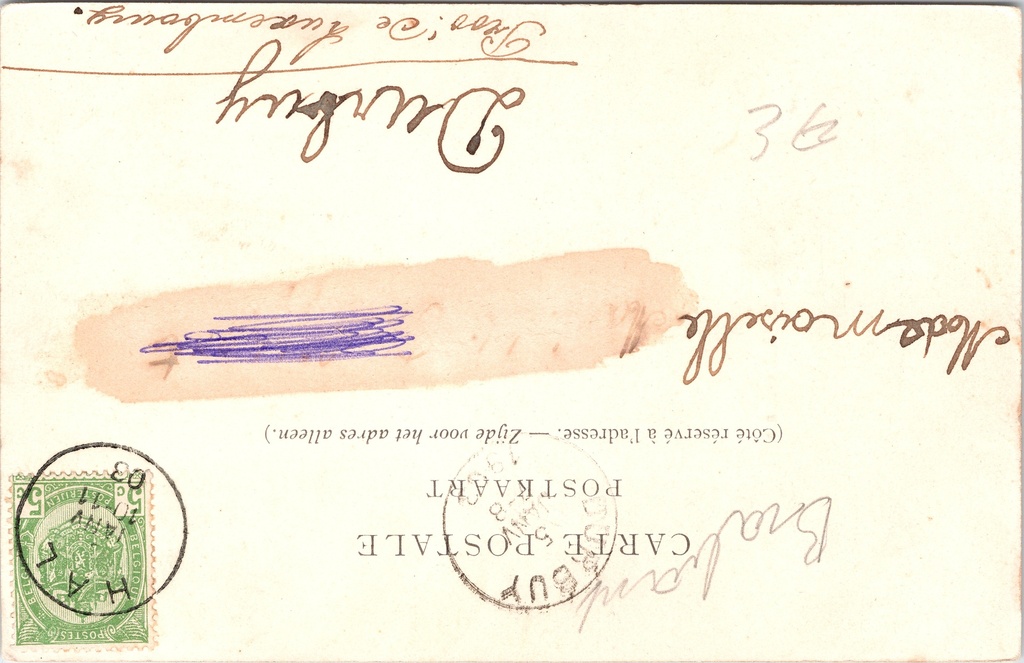 CARTE POSTALE
POSTKAART
(Côté réservé à l'adresse. — Zijde voor het adres alleen.)
Brabant
Mademoiselle
Durbuy
Prov. De Luxembourg.
POSTES
BELGIQUE
5 C 5
HAL
JANV
10-11
03
DURBUY
5
JANV
8